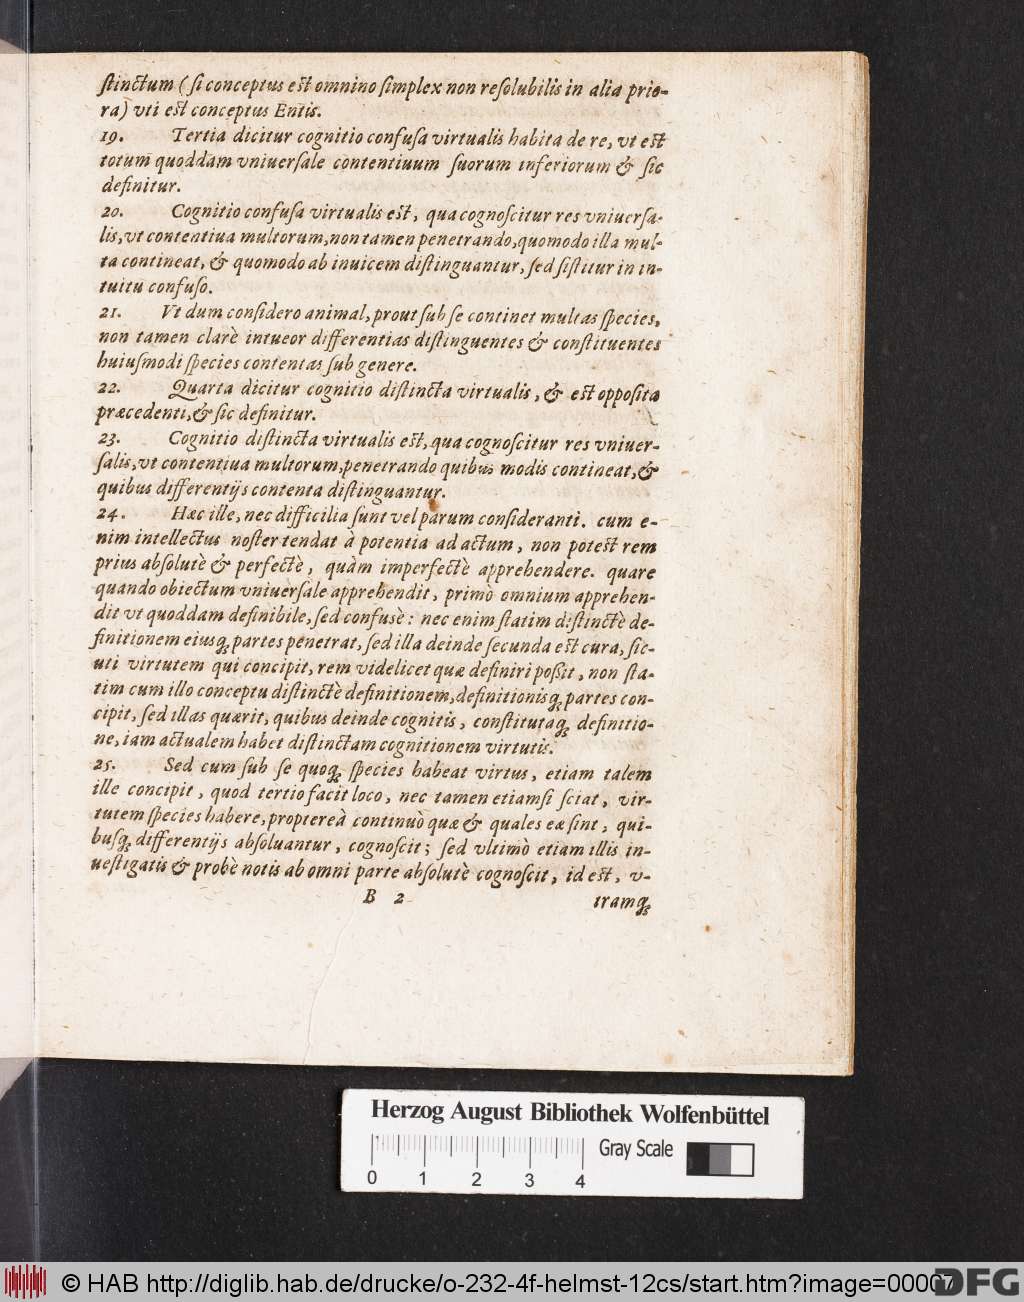 ſtinctum (ſi conceptus eſt omnino ſimplex non reſolubilis in alia prio-
ra) vti eſt conceptus Entis.
19. Tertia dicitur cognitio confuſa virtualis habita de re, vt eſt
totum quoddam vniuerſale contentiuum ſuorum inferiorum & ſic
definitur.
20. Cognitio confuſa virtualis eſt, qua cognoſcitur res vniuerſa-
lis, vt contentiua multorum, non tamen penetrando, quomodo illa mul-
ta contineat, & quomodo ab inuicem diſtinguantur, ſed ſiſtitur in in-
tuitu confuſo.
21. Vt dum conſidero animal, prout ſub ſe continet multas ſpecies,
non tamen clarè intueor differentias diſtinguentes & conſtituentes
huiuſmodi ſpecies contentas ſub genere.
22. Quarta dicitur cognitio diſtincta virtualis, & eſt oppoſita
præcedenti, & ſic definitur.
23. Cognitio diſtincta virtualis eſt, qua cognoſcitur res vniuer-
ſalis, vt contentiua multorum, penetrando quibus modis contineat, &
quibus differentijs contenta diſtinguantur.
24. Hæc ille, nec difficilia ſunt vel parum conſideranti. cum e-
nim intellectus noſter tendat à potentia ad actum, non poteſt rem
prius abſolutè & perfectè, quàm imperfectè apprehendere. quare
quando obiectum vniuerſale apprehendit, primò omnium apprehen-
dit vt quoddam definibile, ſed confusè: nec enim ſtatim diſtinctè de-
finitionem eiusq́; partes penetrat, ſed illa deinde ſecunda eſt cura, ſic-
uti virtutem qui concipit, rem videlicet quæ definiri poßit, non ſta-
tim cum illo conceptu diſtinctè definitionem, definitionisq́; partes con-
cipit, ſed illas quærit, quibus deinde cognitis, conſtitutaq́; definitio-
ne, iam actualem habet diſtinctam cognitionem virtutis.
25. Sed cum ſub ſe quoq́; ſpecies habeat virtus, etiam talem
ille concipit, quod tertio facit loco, nec tamen etiamſi ſciat, vir-
tutem ſpecies habere, proptereà continuò quæ & quales eæ ſint, qui-
busq́; differentijs abſoluantur, cognoſcit; ſed vltimò etiam illis in-
ueſtigatis & probè notis ab omni parte abſolutè cognoſcit, id eſt, v-
B 2 tramq́;
Herzog August Bibliothek Wolfenbüttel
Gray Scale
0 1 2 3 4
© HAB http://diglib.hab.de/drucke/o-232-4f-helmst-12cs/start.htm?image=00007
DFG